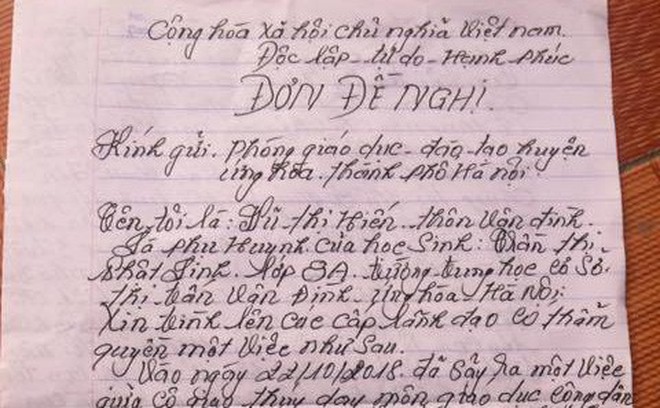 Cộng hòa xã hội chủ nghĩa Việt nam.
Độc lập - tự do - Hạnh phúc
ĐƠN ĐỀ NGHỊ.
Kính gửi. Phòng giáo dục - đào - tạo huyện
ứng hòa. thành phố Hà Nội.
Tên tôi là: Vũ thị Hiến. thôn Vân đình.
Là phụ Huynh của học Sinh: Trần thị
Nhật Linh. lớp 8A. trường trung học cơ Sở.
thị trấn Vân Đình. ứng hòa - Hà Nội.
Xin trình lên các cấp lãnh đạo có thẩm
quyền một việc như sau.
Vào ngày 22/10/2018 đã sảy ra một việc
giữa cô giáo thủy dạy môn giáo dục công dân